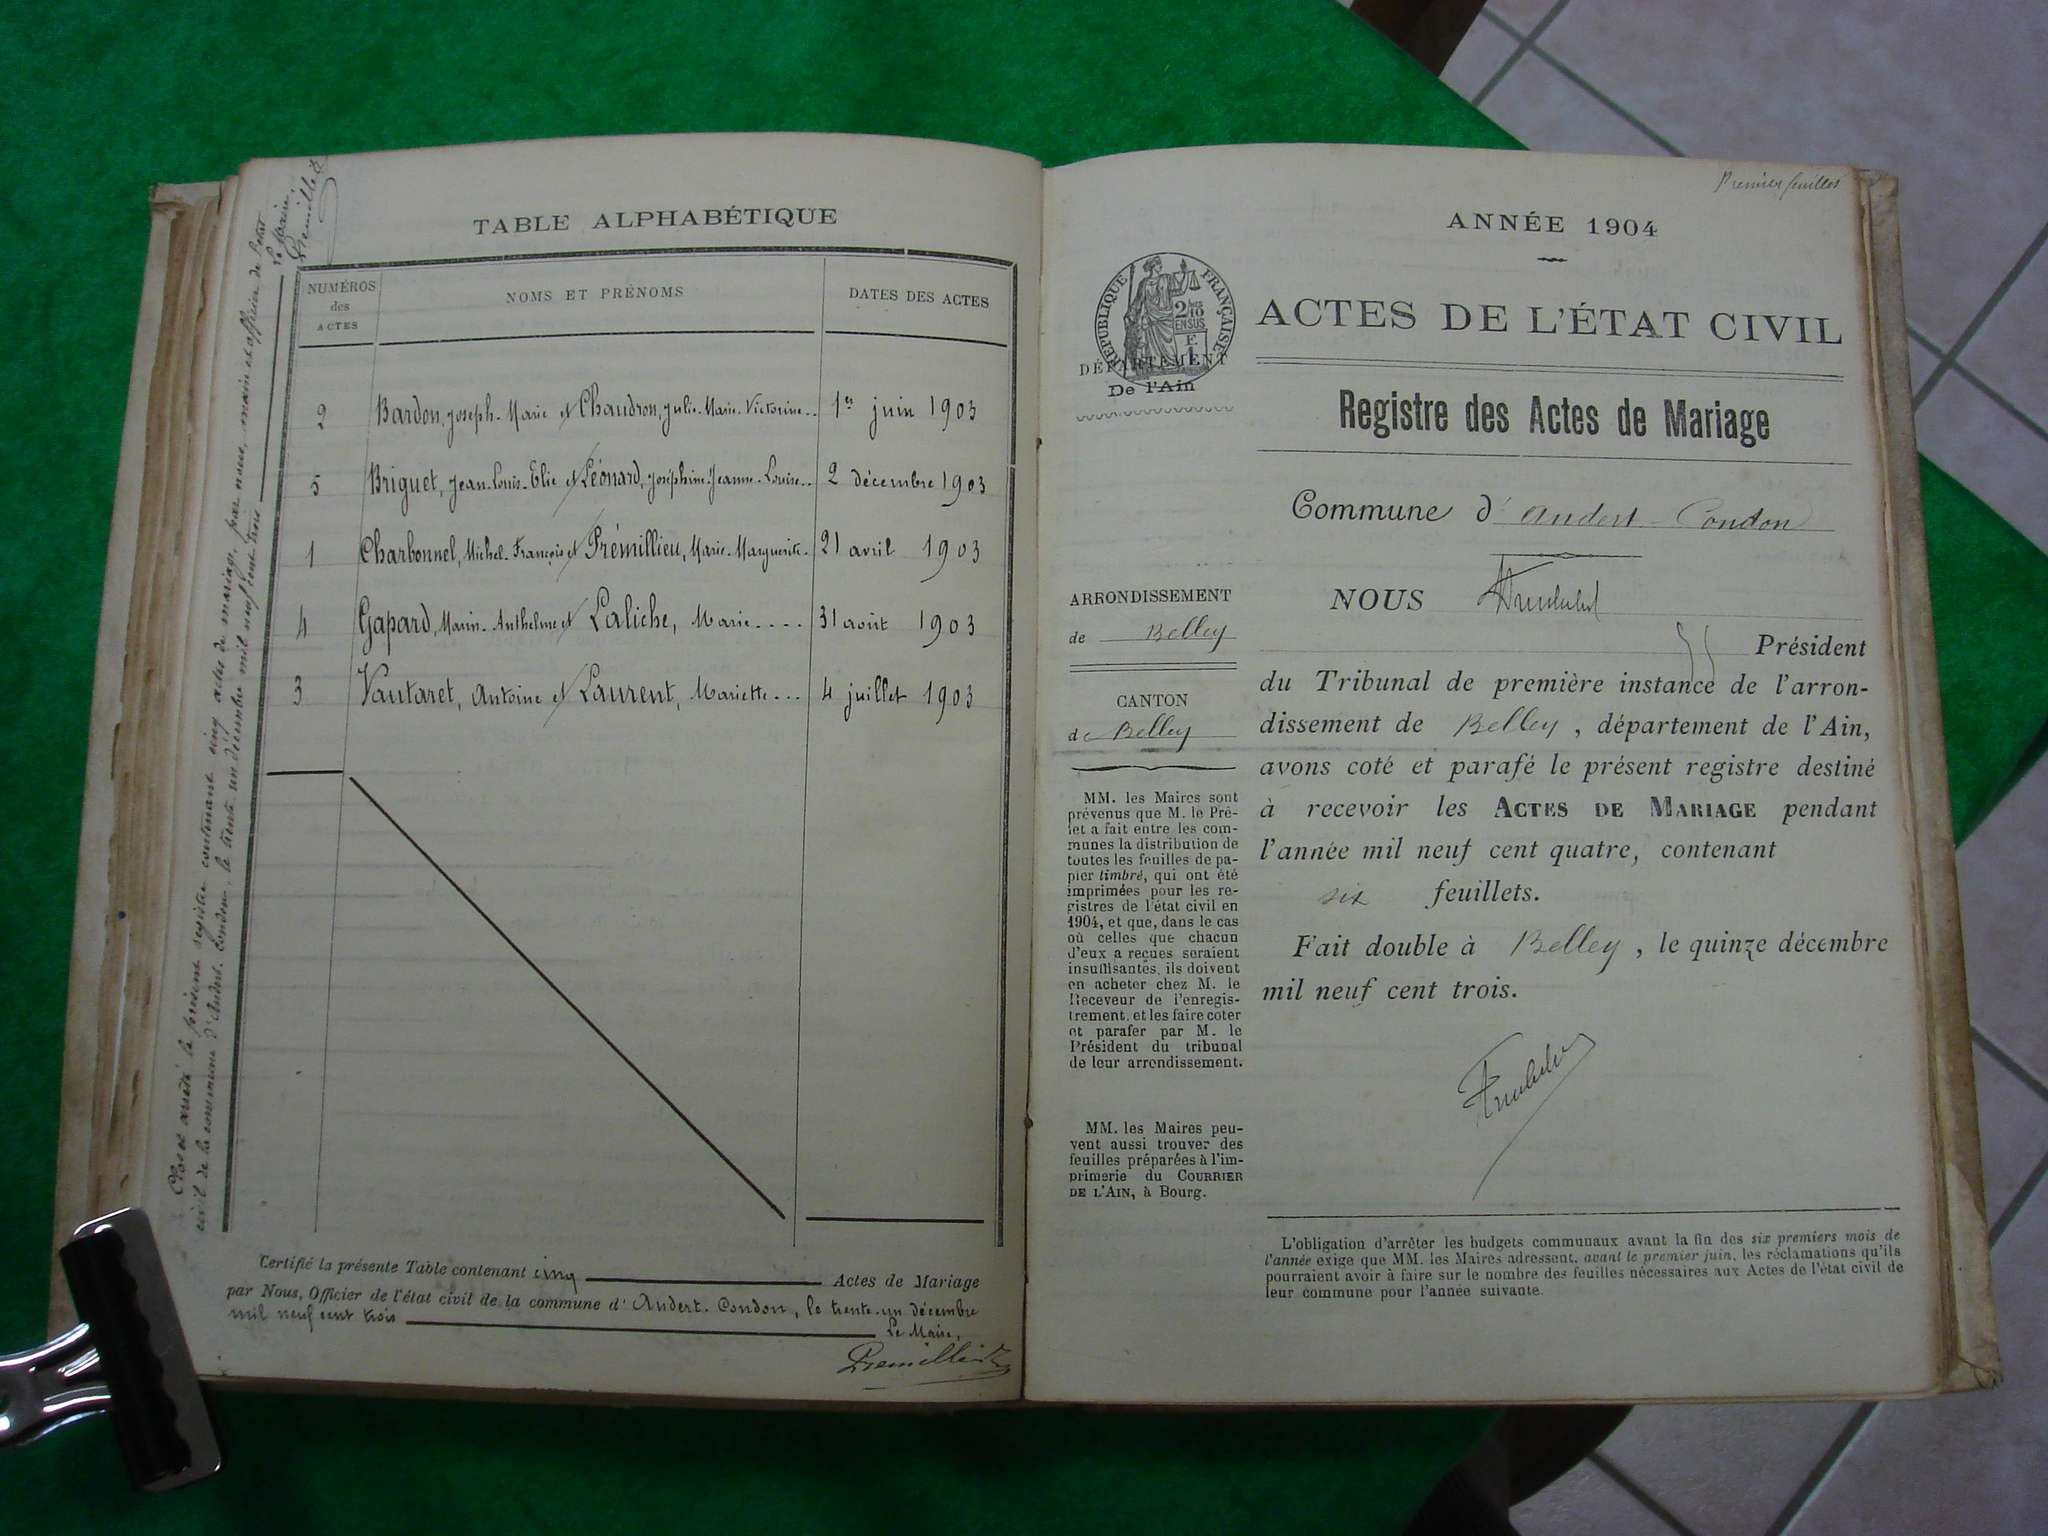 TABLE ALPHABÉTIQUE
NUMÉROS des ACTES
NOMS ET PRÉNOMS
DATES DES ACTES
2 Bardon, Joseph-Marie et Chaudron, Julie-Marie-Victorine.. 1er juin 1903
5 Briguet, Jean-Louis-Elie et Léonard, Joséphine-Jeanne-Louise.. 2 décembre 1903
1 Charbonnel, Michel-François et Prémillieu, Marie-Marguerite. 21 avril 1903
4 Gapard, Marin-Anthelme et Laliche, Marie.... 31 août 1903
3 Vautaret, Antoine et Laurent, Mariette... 4 juillet 1903
Certifié la présente Table contenant cinq Actes de Mariage
par Nous, Officier de l'état civil de la commune d'Andert-Condon, le trente-un décembre
mil neuf cent trois
Le Maire,
Clos et arrêté le présent registre contenant cinq actes de mariage, par nous, maire et officier de l'état
civil de la commune d'Andert-Condon, le trente un décembre mil neuf cent trois
Le Maire
Premier feuillet
ANNÉE 1904
RÉPUBLIQUE FRANÇAISE
2/10 EN SUS
F. 1
DÉPARTEMENT
De l'Ain
ACTES DE L'ÉTAT CIVIL
Registre des Actes de Mariage
Commune d'Andert-Condon
ARRONDISSEMENT
de Belley
CANTON
de Belley
MM. les Maires sont
prévenus que M. le Pré-
fet a fait entre les com-
munes la distribution de
toutes les feuilles de pa-
pier timbré, qui ont été
imprimées pour les re-
gistres de l'état civil en
1904, et que, dans le cas
où celles que chacun
d'eux a reçues seraient
insuffisantes, ils doivent
en acheter chez M. le
Receveur de l'enregis-
trement, et les faire coter
et parafer par M. le
Président du tribunal
de leur arrondissement.
MM. les Maires peu-
vent aussi trouver des
feuilles préparées à l'im-
primerie du COURRIER
DE L'AIN, à Bourg.
NOUS
Président
du Tribunal de première instance de l'arron-
dissement de Belley, département de l'Ain,
avons coté et parafé le présent registre destiné
à recevoir les ACTES DE MARIAGE pendant
l'année mil neuf cent quatre, contenant
six feuillets.
Fait double à Belley, le quinze décembre
mil neuf cent trois.
L'obligation d'arrêter les budgets communaux avant la fin des six premiers mois de
l'année exige que MM. les Maires adressent, avant le premier juin, les réclamations qu'ils
pourraient avoir à faire sur le nombre des feuilles nécessaires aux Actes de l'état civil de
leur commune pour l'année suivante.